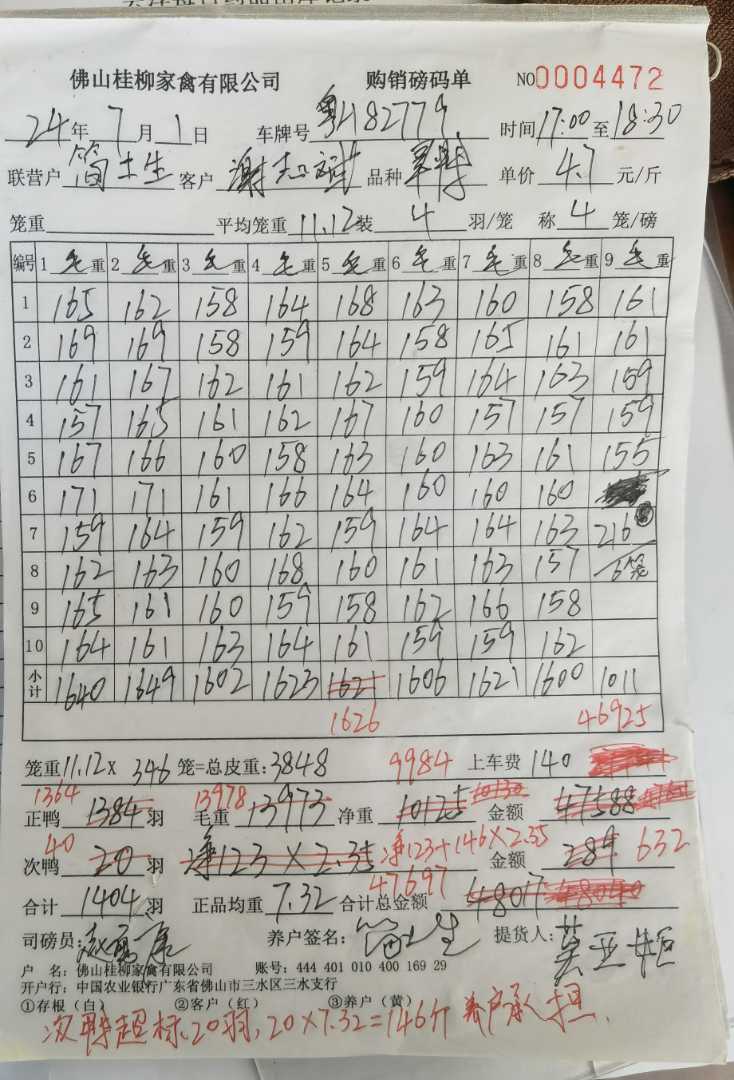 佛山桂柳家禽有限公司 购销磅码单 NO0004472
24年7月1日 车牌号粤H82779 时间17:00至18:30
联营户 简土生 客户 谢志斌 品种 单价 4.7 元/斤
笼重 平均笼重11.12装 4 羽/笼 称 4 笼/磅
编号 1毛重 2毛重 3毛重 4毛重 5毛重 6毛重 7毛重 8毛重 9毛重
1 165 162 158 164 168 163 160 158 161
2 169 169 158 159 164 158 165 161 161
3 161 167 162 161 162 159 164 163 159
4 157 165 161 162 167 160 157 157 159
5 167 166 160 158 163 160 163 161 155
6 171 171 161 166 164 160 160 160
7 159 164 159 162 159 164 164 163 216
8 162 163 160 168 160 161 163 157 6笼
9 165 161 160 159 158 162 166 158
10 164 161 163 164 161 159 159 162
小计 1640 1649 1602 1623 1621 1606 1621 1600 1011
1626 46925
笼重11.12X 346 笼=总皮重:3848 9984 上车费 140
1364 13978 10130
正鸭 1384 羽 毛重 13973 净重 10125 金额 47588
40
次鸭 20 羽 净123×2.35 净123+146×2.35 金额 289 632
47697
合计 1404 羽 正品均重 7.32 合计总金额 48017 48040
司磅员: 养户签名:简土生 提货人:
户 名:佛山桂柳家禽有限公司 账号:444 401 010 400 169 29
开户行:中国农业银行广东省佛山市三水区三水支行
①存根(白) ②客户(红) ③养户(黄)
次鸭超标20羽,20×7.32=146斤 养户承担.